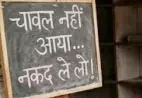 चावल नहीं
आया...
नकद ले लो!